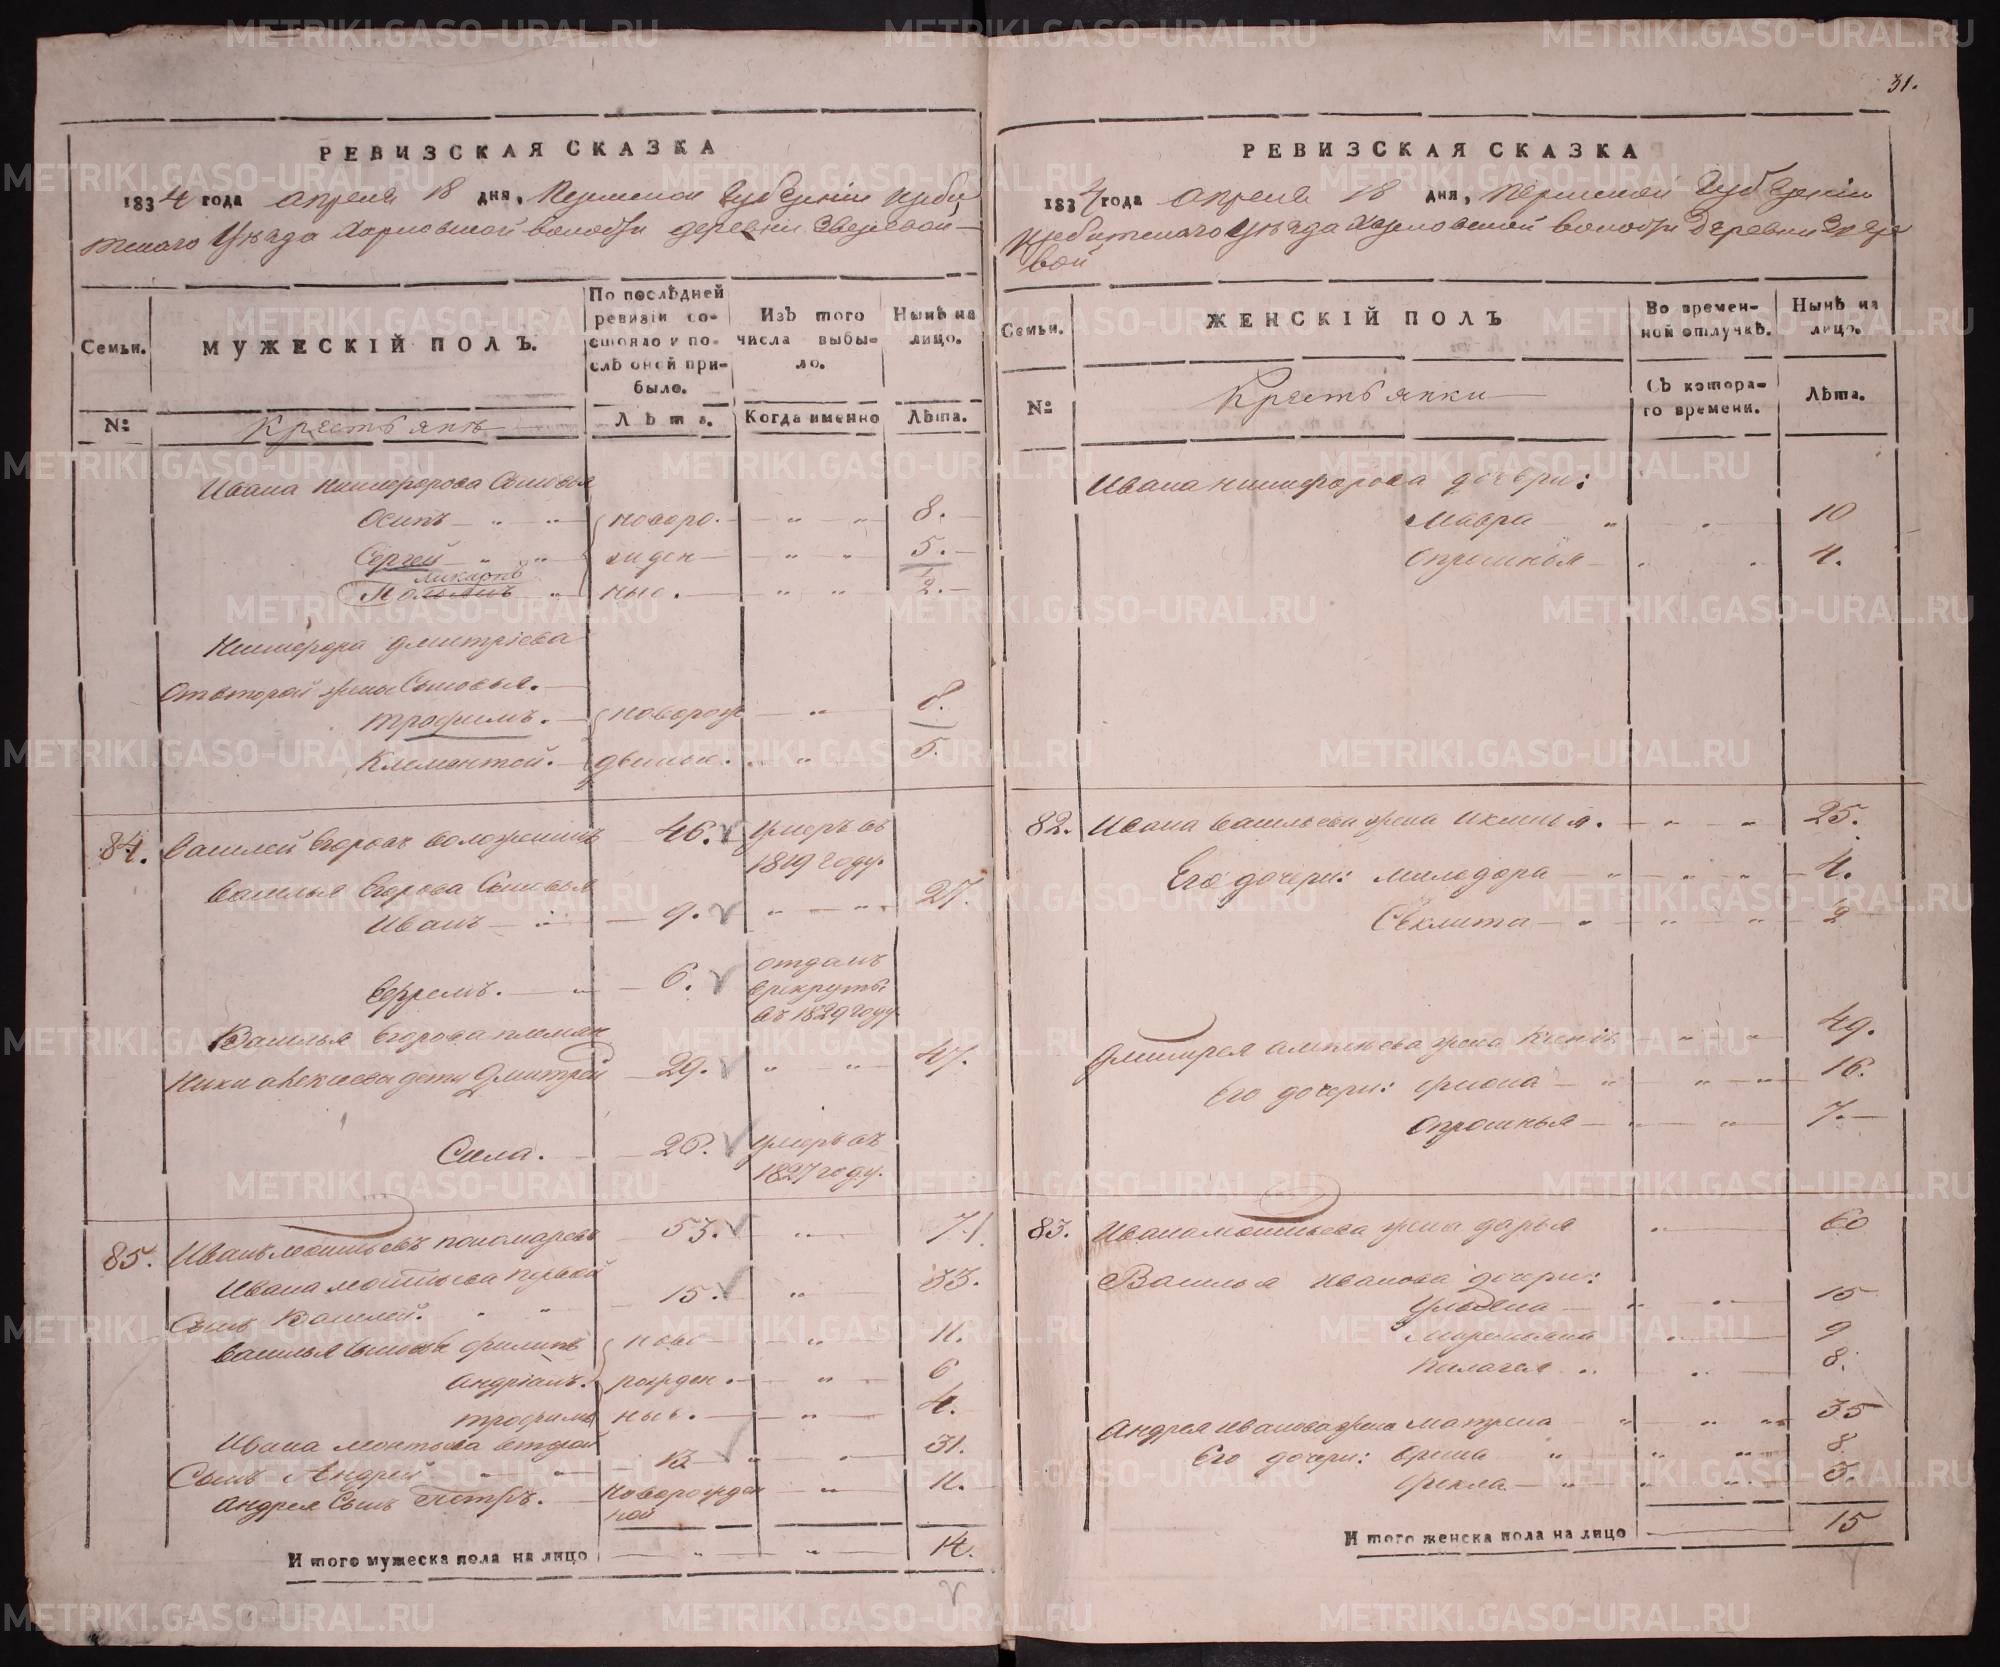 31.
РЕВИЗСКАЯ СКАЗКА
1834 года апреля 18 дня, Пермской Губерніи Ирби
тскаго Уѣзда Харловской волости деревни Зверевой
Семьи.
МУЖЕСКІЙ ПОЛЪ.
По послѣдней
ревизіи со-
стояло и по-
слѣ оной при-
было.
Изъ того
числа выбы-
ло.
Нынѣ на
лицо.
№
Крестьянъ
Лѣта.
Когда именно
Лѣта.
Ивана Никифорова Сыновья
Осипъ новоро. 8.
Сергей жден 5.
Ликарпъ
По ные. 2.
Никифора Дмитріева
От второй жены Сыновья.
Трофимъ. новорож 8.
Климентей. 5.
84. Василей Егоровъ 46. умеръ въ
1819 году.
Василья Егорова Сыновья
Иванъ 9. 27.
Ефремъ. 6. отданъ
врекруты
въ 1829 году.
Василья Егорова племян
дети Дмитрей 29. 47.
Сила. 26. умеръ въ
1827 году.
85. Иванъ пономаревъ 53. 71
Ивана первой 33.
Сынъ Василей. 15.
Василья Сыновья Филипъ ново 11.
Андріанъ. рожден. 6
Трофимъ ные. 4.
Ивана второй
Сынъ Андрей 13 31.
Андрея Сынъ Петръ. новорожден 11.
ной
И того мужеска пола на лицо 14.
РЕВИЗСКАЯ СКАЗКА
1834 года апреля 18 дня, Пермской Губерніи
Ирбитскаго Уѣзда Харловской волости Деревни Звере
вой
Семьи.
ЖЕНСКІЙ ПОЛЪ
Во времен-
ной отлучкѣ.
Нынѣ на
лицо.
№
Крестьянки
Съ котора-
го времени.
Лѣта.
Ивана Никифорова дочери:
Мавра 10
Опросинья 4.
82. Ивана Васильева жена Аксинья. 25.
Его дочери: Милодора 4.
Секлита 2
Дмитрея жена 49.
Его дочери: 16.
Опросинья 7.
83. Ивана жена Дарья 60
Василья Иванова дочери:
Ульяна 15
9
Пелагея 8.
Андрея Иванова жена Матрена 35
Его дочери: Орина 8.
Фекла 3.
И того женска пола на лицо 15